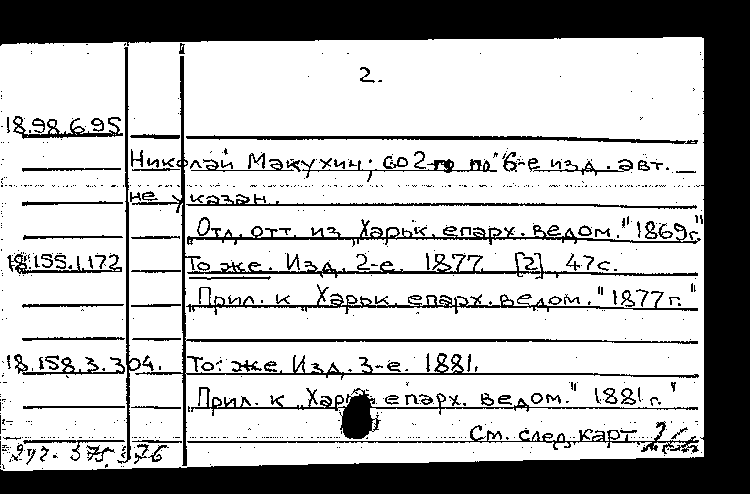 2.
18.98.6.95
Николай Макухин; со 2-го по 6-е изд. авт.
не указан.
„Отд. отт. из „Харьк. епарх. ведом." 1869г."
18.155.1.172 То же. Изд. 2-е. 1877. [2], 47с.
„Прил. к „Харьк. епарх. ведом." 1877г."
18.158.3.304. То же. Изд. 3-е. 1881.
„Прил. к „Харьк. епарх. ведом." 1881г."
См. след. карт.